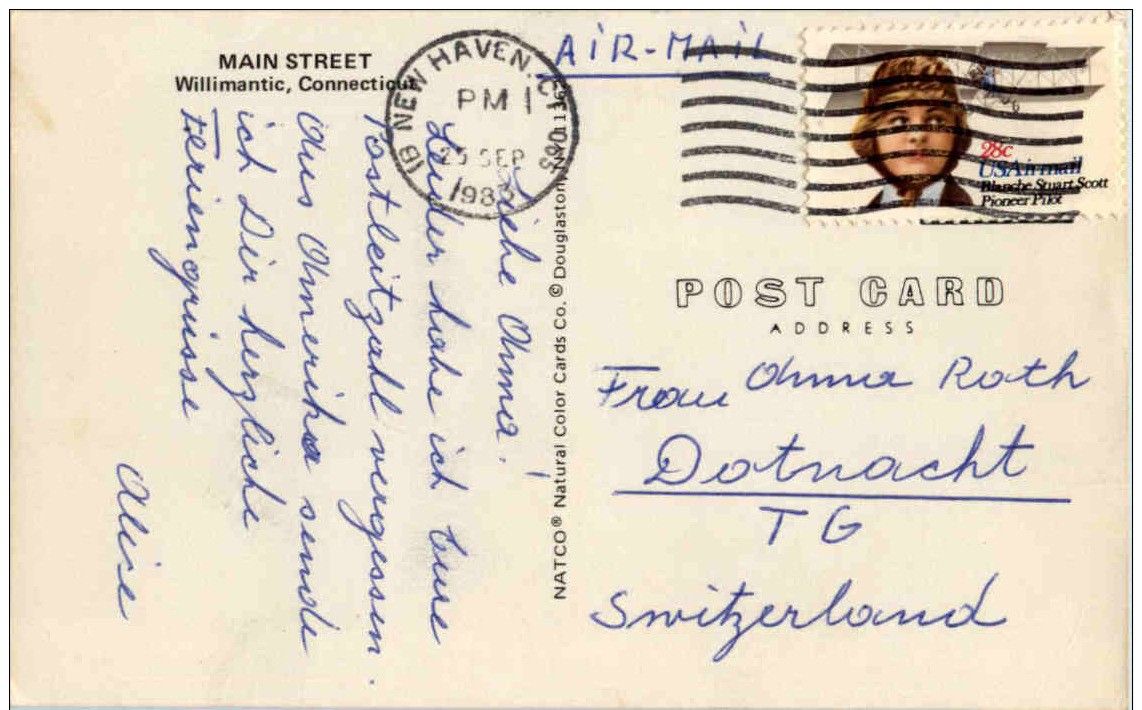 MAIN STREET
Willimantic, Connecticut
AIR-MAIL
NEW HAVEN, CT 065
PM 1
SEP
28c
USAirmail
Blanche Stuart Scott
Pioneer Pilot
Liebe Anna!
Leider habe ich Eure
Postleitzahl vergessen.
Aus Amerika sende
ich Dir herzliche
Feriengrüsse
Alice
NATCO® Natural Color Cards Co. © Douglaston, NY
POST CARD
ADDRESS
Frau Anna Roth
Dotnacht
TG
Switzerland